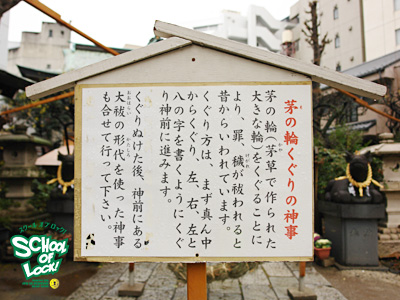 茅の輪くぐりの神事
茅の輪(茅草で作られた
大きな輪)をくぐることに
より、罪、穢が祓われると
昔からいわれています。
くぐり方は、まず真ん中
からくぐり、左、右、左と
八の字を書くようにくぐ
り神前に進みます。
くぐりぬけた後、神前にある
大祓の形代を使った神事
も合せて行って下さい。
スクールオブロック!
SCHOOL
OF
LOCK!